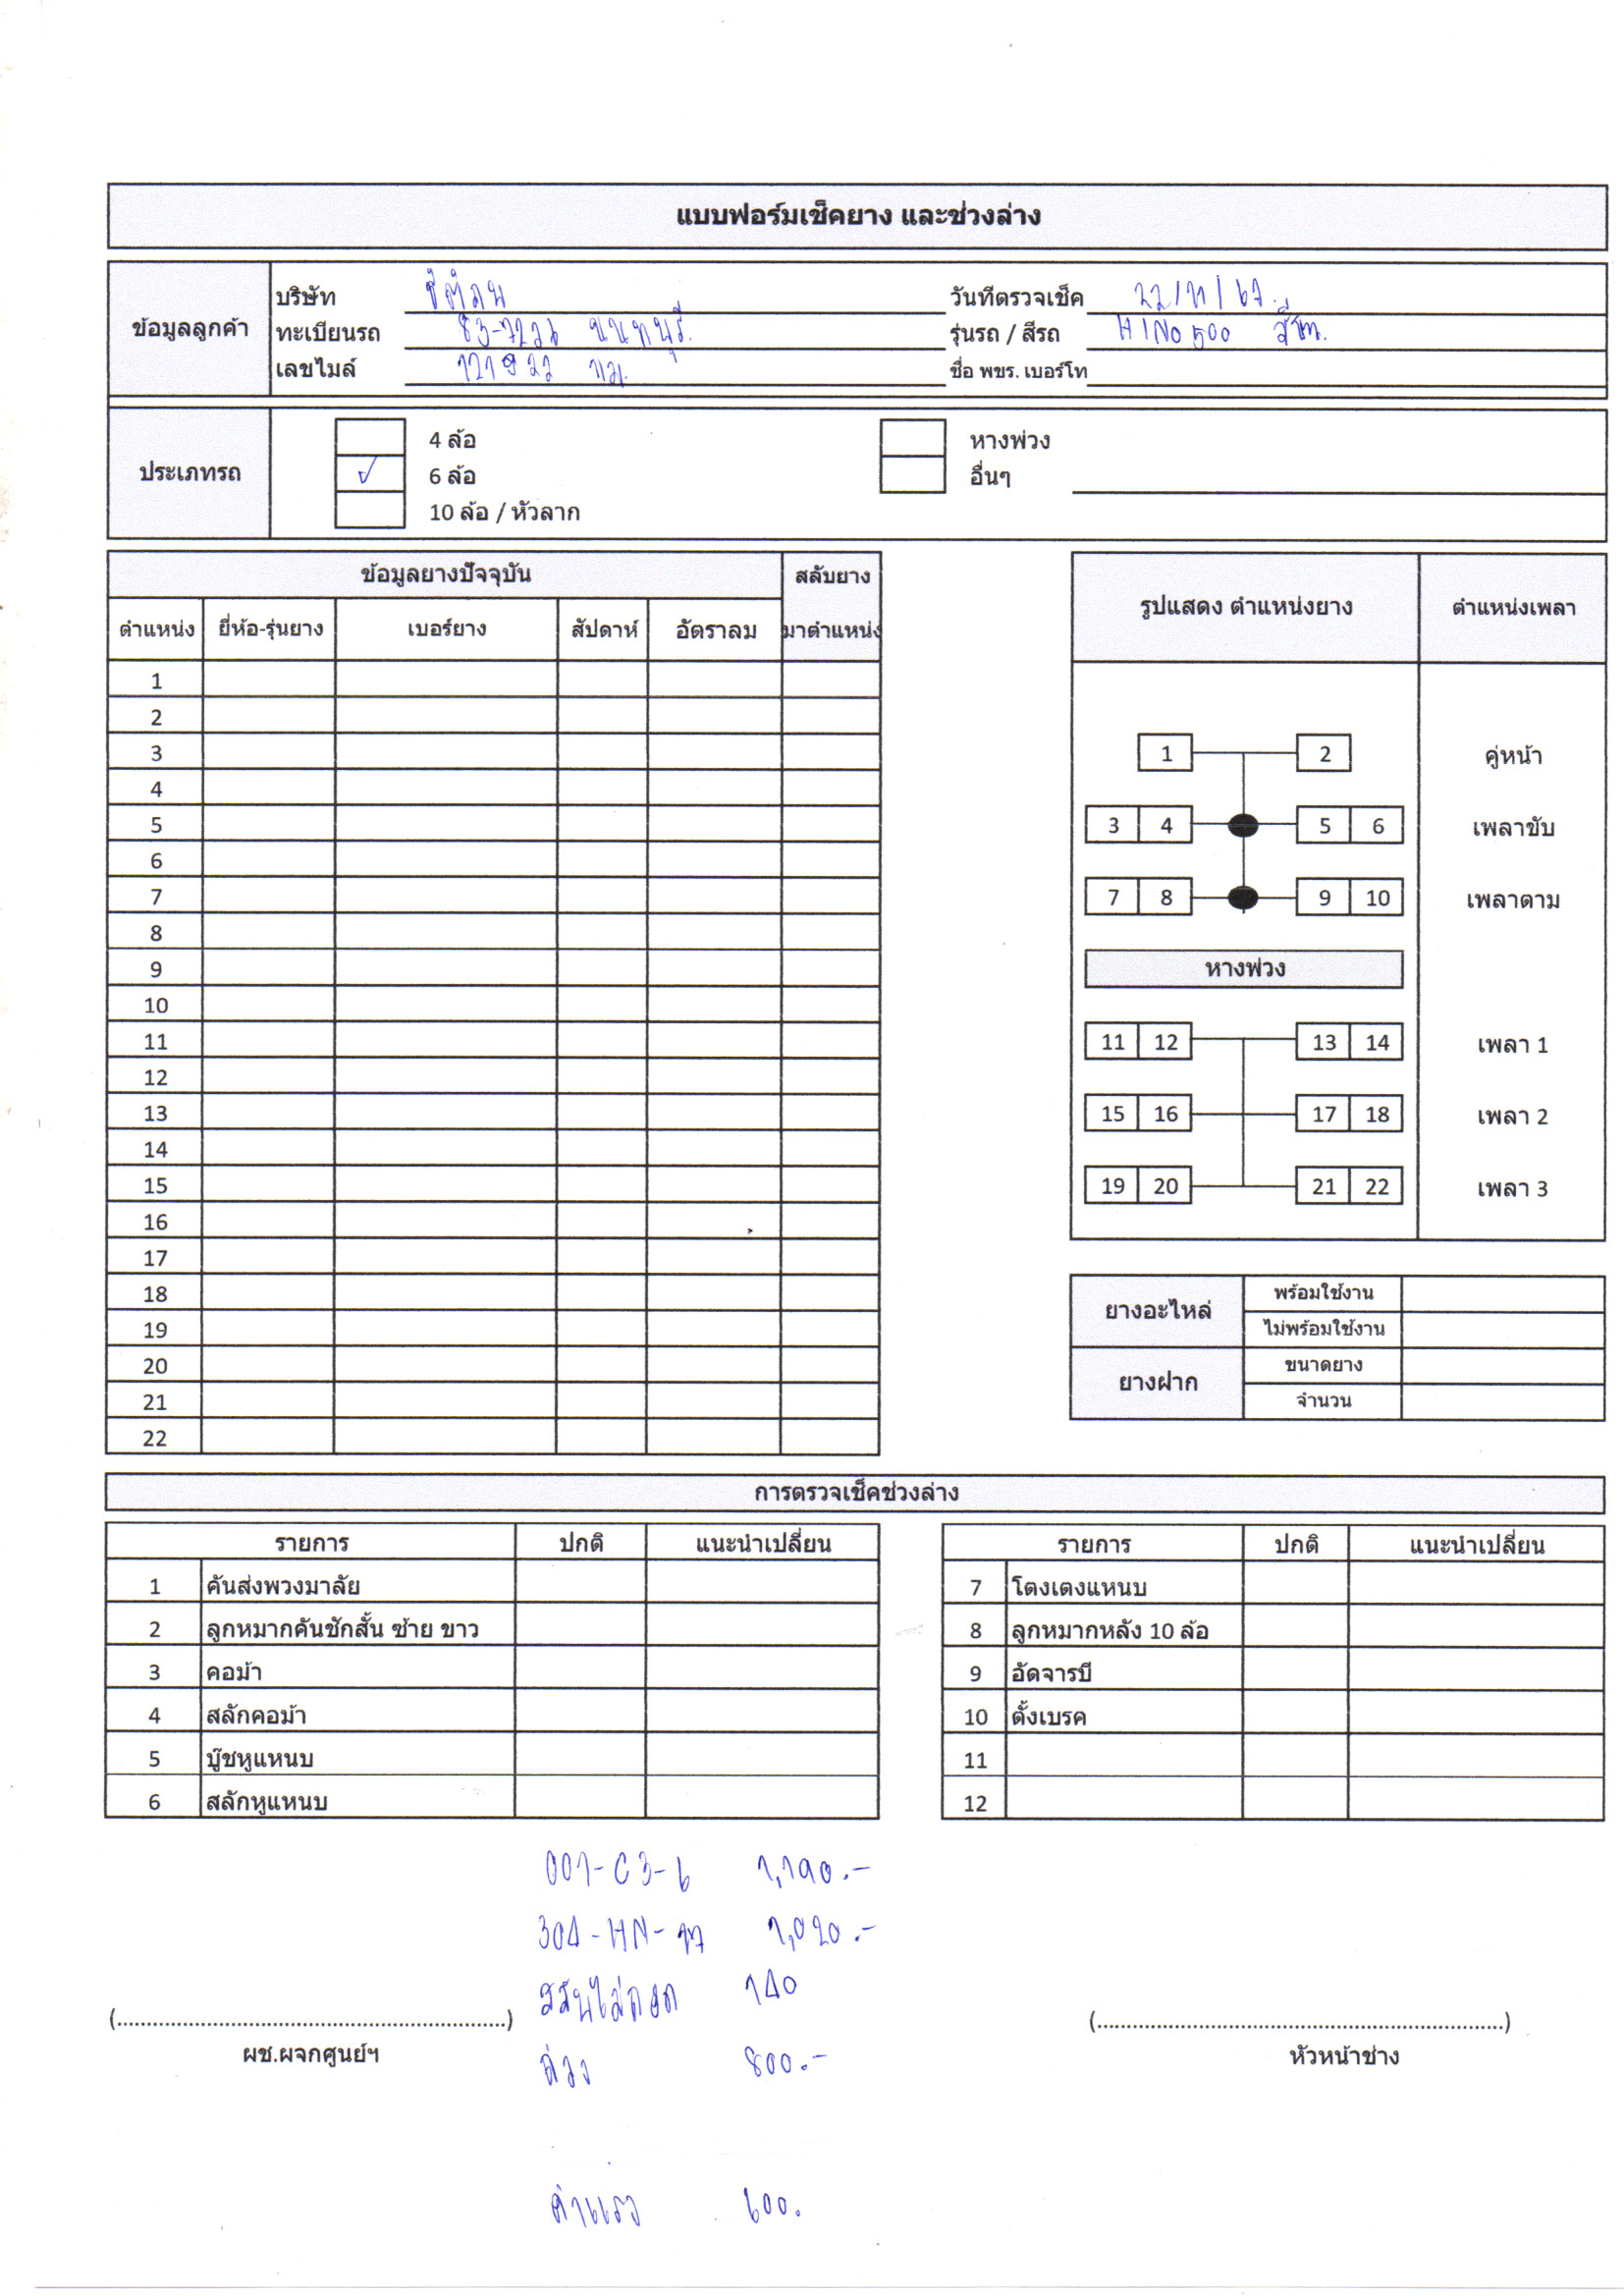 แบบฟอร์มเช็คยาง และช่วงล่าง
ข้อมูลลูกค้า
บริษัท
วันที่ตรวจเช็ค 22/11/67.
ทะเบียนรถ 83-7226 นนทบุรี
รุ่นรถ / สีรถ HINO 500
เลขไมล์ 121922 กม.
ชื่อ พขร. เบอร์โท
ประเภทรถ
4 ล้อ
หางพ่วง
✓ 6 ล้อ
อื่นๆ
10 ล้อ / หัวลาก
ข้อมูลยางปัจจุบัน สลับยาง
ตำแหน่ง ยี่ห้อ-รุ่นยาง เบอร์ยาง สัปดาห์ อัตราลม มาตำแหน่ง
1
2
3
4
5
6
7
8
9
10
11
12
13
14
15
16
17
18
19
20
21
22
รูปแสดง ตำแหน่งยาง ตำแหน่งเพลา
1 2 คู่หน้า
3 4 5 6 เพลาขับ
7 8 9 10 เพลาตาม
หางพ่วง
11 12 13 14 เพลา 1
15 16 17 18 เพลา 2
19 20 21 22 เพลา 3
ยางอะไหล่ พร้อมใช้งาน
ไม่พร้อมใช้งาน
ยางฝาก ขนาดยาง
จำนวน
การตรวจเช็คช่วงล่าง
รายการ ปกติ แนะนำเปลี่ยน
1 คันส่งพวงมาลัย
2 ลูกหมากคันชักสั้น ซ้าย ขาว
3 คอม้า
4 สลักคอม้า
5 บู๊ชหูแหนบ
6 สลักหูแหนบ
รายการ ปกติ แนะนำเปลี่ยน
7 โตงเตงแหนบ
8 ลูกหมากหลัง 10 ล้อ
9 อัดจารบี
10 ตั้งเบรค
11
12
001-C3-6 1,190.-
304-HN-17 1,020.-
140
800.-
ค่าแรง 600.
(..................................................)
ผช.ผจกศูนย์ฯ
(..................................................)
หัวหน้าช่าง